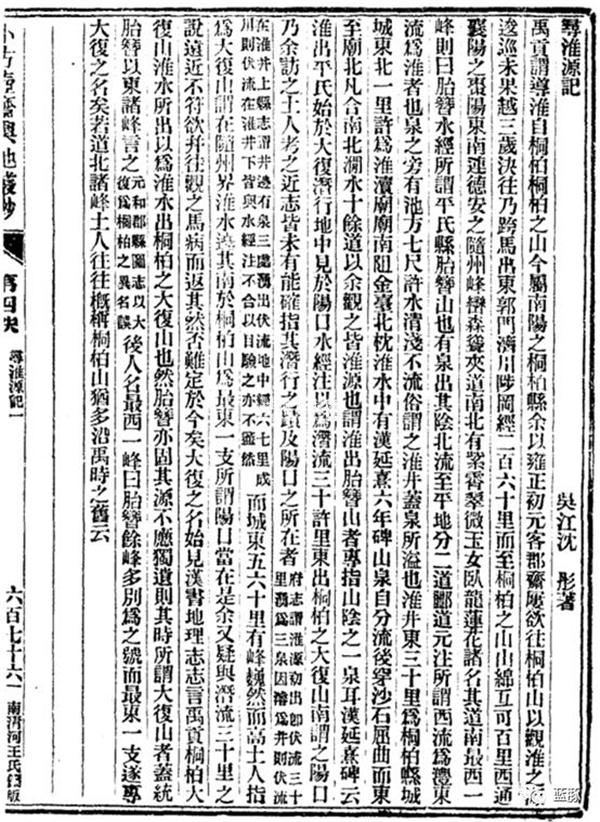 尋淮源記
吳江沈 彤著
禹貢謂導淮自桐柏桐柏之山今屬南陽之桐柏縣余以雍正初元客郡齋屢欲往桐柏山以觀淮之
逡巡未果越三歲決往乃跨馬出東郭門濟川陟岡經二百六十里而至桐柏之山山綿亙可百里西通
襄陽之棗陽東南連德安之隨州峰巒森聳夾道南北有紫霄翠微玉女臥龍蓮花諸名其道南最西一
峰則曰胎簪水經所謂平氏縣胎簪山也有泉出其陰北流至平地分二道酈道元注所謂西流為澧東
流為淮者也泉之旁有池方七尺許水清淺不流俗謂之淮井蓋泉所溢也淮井東三十里為桐柏縣城
城東北一里許為淮瀆廟廟南阻金臺北枕淮水中有漢延熹六年碑山泉自分流後穿沙石屈曲而東
至廟北凡合南北澗水十餘道以余觀之皆淮源也謂淮出胎簪山者專指山陰之一泉耳漢延熹碑云
淮出平氏始於大復潛行地中見於陽口水經注以為潛流三十許里東出桐柏之大復山南謂之陽口
乃余訪之土人考之近志皆未有能確指其潛行之蹟及陽口之所在者
府志謂淮源初出卽伏流三十
里湧為三泉因濬為井則伏流
在淮井上縣志謂井邊有泉三處湧出伏流地中經六七里成
川則伏流在淮井下皆與水經注不合以目驗之亦不盡然
而城東五六十里有峰巍然而高土人指
為大復山謂在隨州界淮水遶其南於桐柏山為最東一支所謂陽口當在是余又疑與潛流三十里之
說遠近不符欲幷往觀之馬病而返其然否難定於今矣大復之名始見漢書地理志志言禹貢桐柏大
復山淮水所出以為淮水出桐柏之大復山也然胎簪亦固其源不應獨遺則其時所謂大復山者蓋統
胎簪以東諸峰言之
元和郡縣圖志以大
復為桐柏之異名誤
後人名最西一峰曰胎簪餘峰多別為之號而最東一支遂專
大復之名矣若道北諸峰土人往往槪稱桐柏山猶多沿禹時之舊云
小方壺齋輿地叢鈔
第四帙
尋淮源記一
六百七十六
南清河王氏
蓝豚